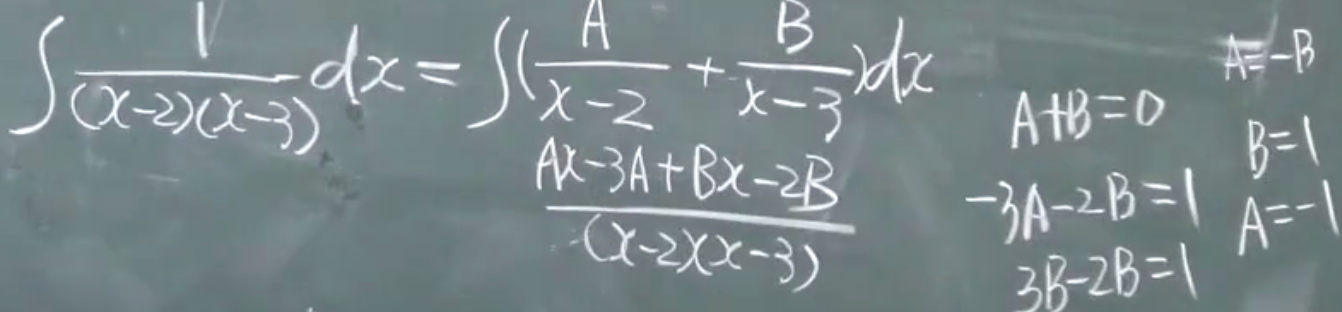 ∫ 1/((x-2)(x-3)) dx = ∫(A/(x-2) + B/(x-3))dx
(Ax-3A+Bx-2B)/((x-2)(x-3))
A+B=0
-3A-2B=1
3B-2B=1
A=-B
B=1
A=-1